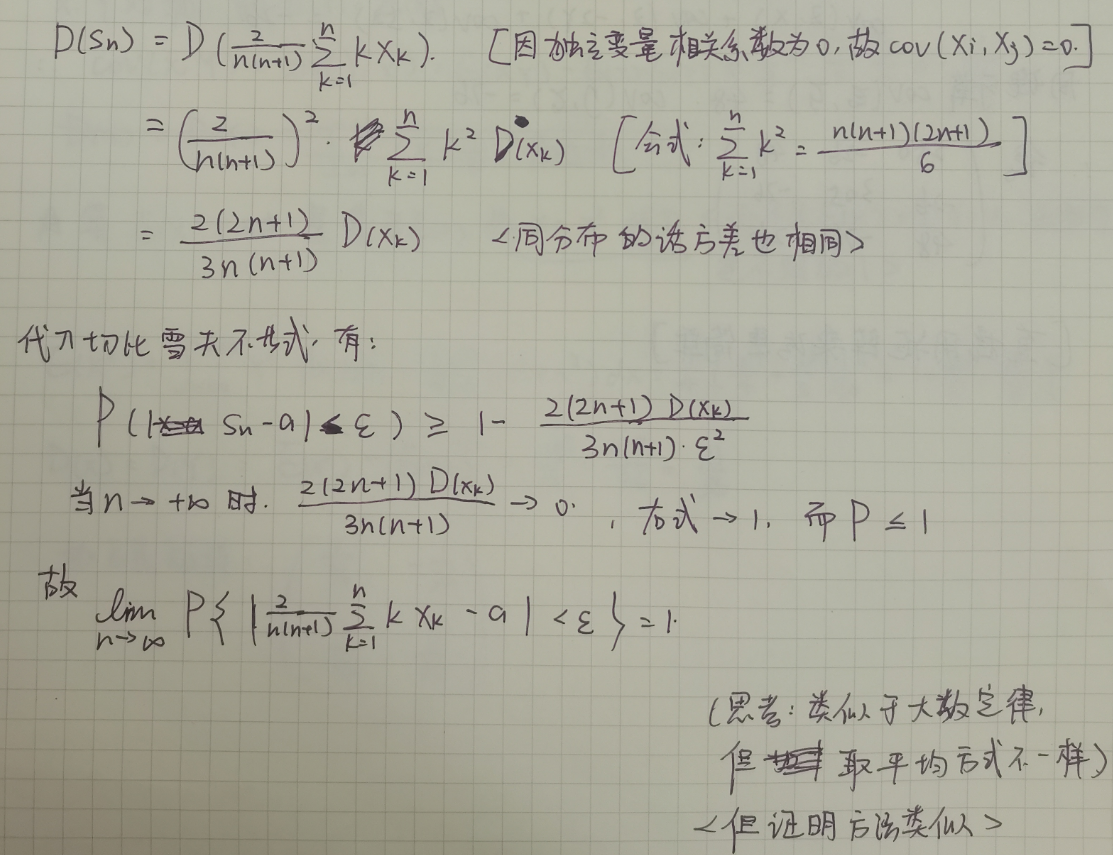 D(Sn) = D(2/n(n+1) Σ_{k=1}^{n} k Xk). [因独立变量相关系数为0,故cov(Xi,Xj)=0.]
= (2/n(n+1))² · Σ_{k=1}^{n} k² D(Xk) [公式: Σ_{k=1}^{n} k² = n(n+1)(2n+1)/6]
= 2(2n+1)/3n(n+1) D(Xk) <同分布的话方差也相同>
代入切比雪夫不等式,有:
P(|Sn-a|< ε) ≥ 1- 2(2n+1)D(Xk)/3n(n+1)·ε²
当n→+∞时. 2(2n+1)D(Xk)/3n(n+1) → 0. , 右式→1, 而P≤1
故 lim_{n→∞} P{ |2/n(n+1) Σ_{k=1}^{n} k Xk - a| < ε } = 1.
(思考:类似于大数定律,
但取平均方式不一样)
<但证明方法类似>